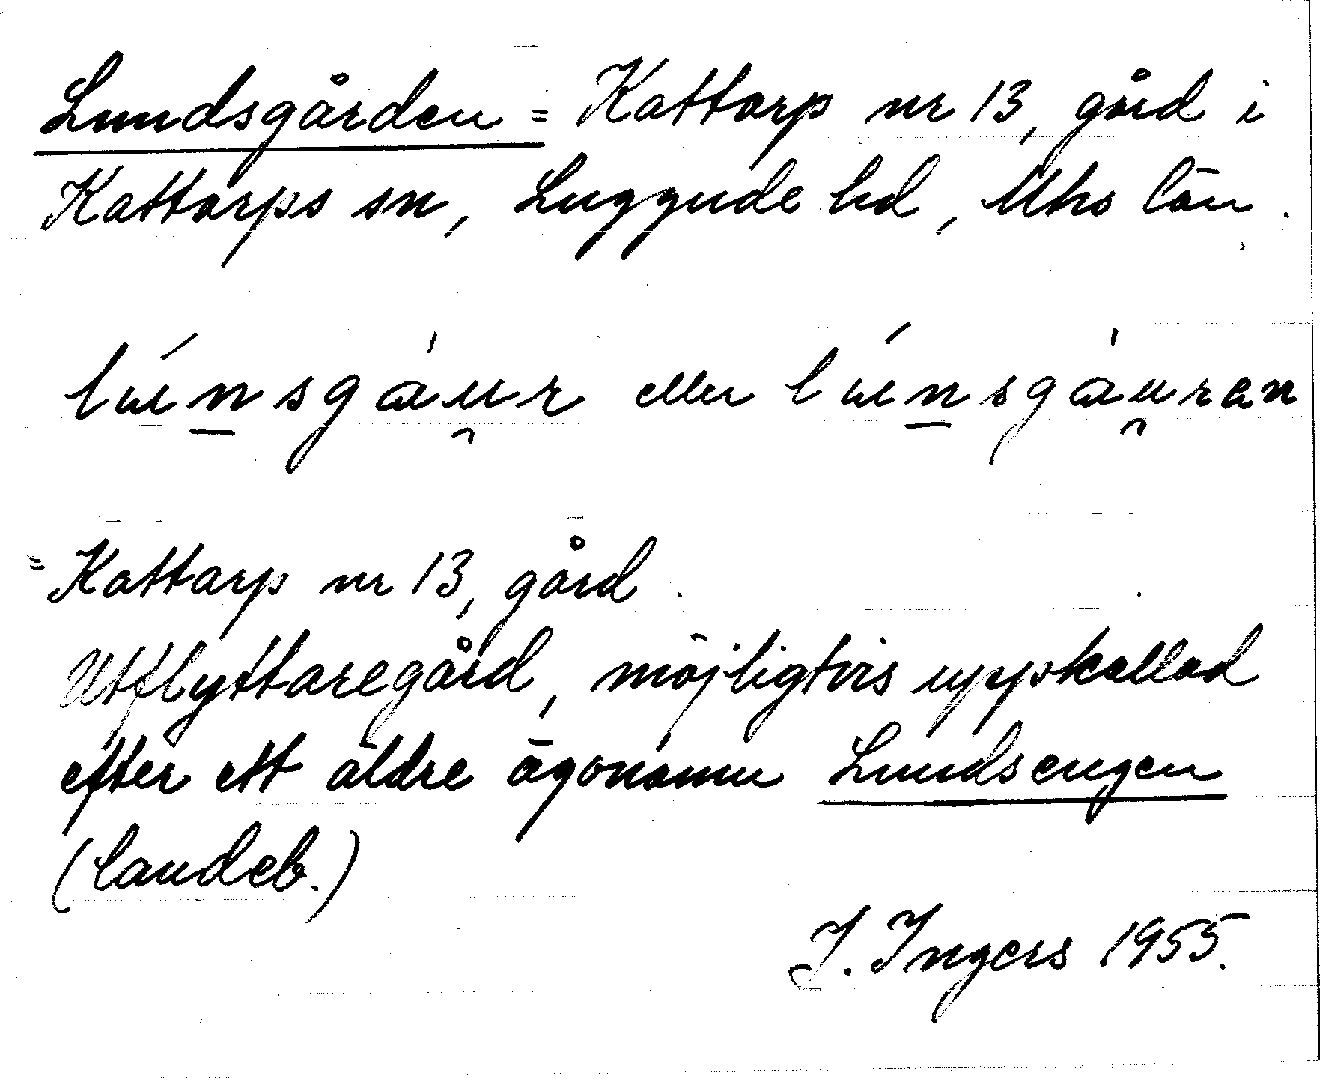 Lundsgården = Kattarp nr 13, gård i
Kattarps sn, Luggude hd, Mhs län.
lún̲sgáu̯r eller lún̲sgáu̯ran
= Kattarp nr 13, gård.
Utflyttaregård, möjligtvis uppkallad
efter ett äldre ägonamn Lundsengen
(landeb.)
I. Ingers 1955.